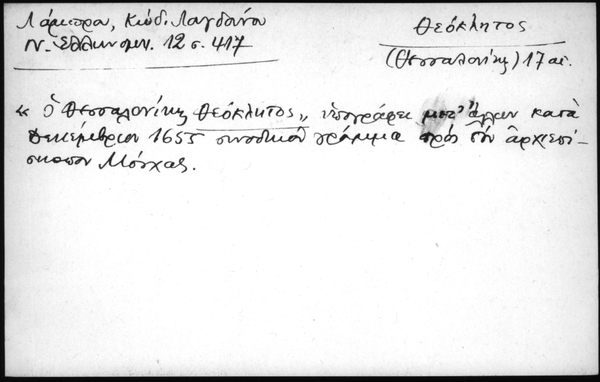 Λάμπρου, Κώδ. Λαγδάνου
Ν. Ἑλληνομν. 12 σ. 417
Θεόκλητος
(Θεσσαλονίκης) 17 αἰ.
« ὁ Θεσσαλονίκης Θεόκλητος,, ὑπογράφει μετ' ἄλλων κατὰ
Δεκέμβριον 1655 συνοδικὸν γράμμα πρὸς τὸν ἀρχιεπί-
σκοπον Μόσχας.